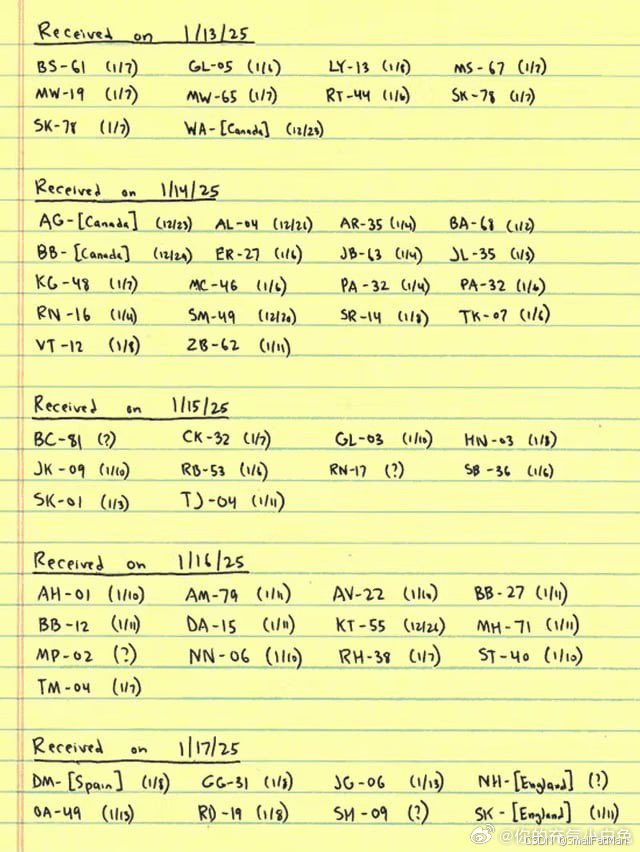 Received on 1/13/25
BS-61 (1/7) GL-05 (1/6) LY-13 (1/8) MS-67 (1/7)
MW-19 (1/7) MW-65 (1/7) RT-44 (1/6) SK-78 (1/7)
SK-78 (1/7) WA-[Canada] (12/23)
Received on 1/14/25
AG-[Canada] (12/23) AL-04 (12/26) AR-35 (1/4) BA-68 (1/2)
BB-[Canada] (12/24) ER-27 (1/6) JB-63 (1/4) JL-35 (1/3)
KG-48 (1/7) MC-46 (1/6) PA-32 (1/4) PA-32 (1/6)
RN-16 (1/4) SM-49 (12/20) SR-14 (1/8) TK-07 (1/6)
VT-12 (1/8) ZB-62 (1/11)
Received on 1/15/25
BC-81 (?) CK-32 (1/7) GL-03 (1/10) HN-03 (1/8)
JK-09 (1/10) RB-53 (1/6) RN-17 (?) SB-36 (1/6)
SK-01 (1/3) TJ-04 (1/11)
Received on 1/16/25
AH-01 (1/10) AM-79 (1/11) AV-22 (1/10) BB-27 (1/11)
BB-12 (1/11) DA-15 (1/11) KT-55 (12/26) MH-71 (1/11)
MP-02 (?) NN-06 (1/10) RH-38 (1/7) ST-40 (1/10)
TM-04 (1/7)
Received on 1/17/25
DM-[Spain] (1/8) GG-31 (1/8) JG-06 (1/13) NH-[England] (?)
OA-49 (1/13) RD-19 (1/8) SH-09 (?) SK-[England] (1/11)
CSDN @SmallFatMan